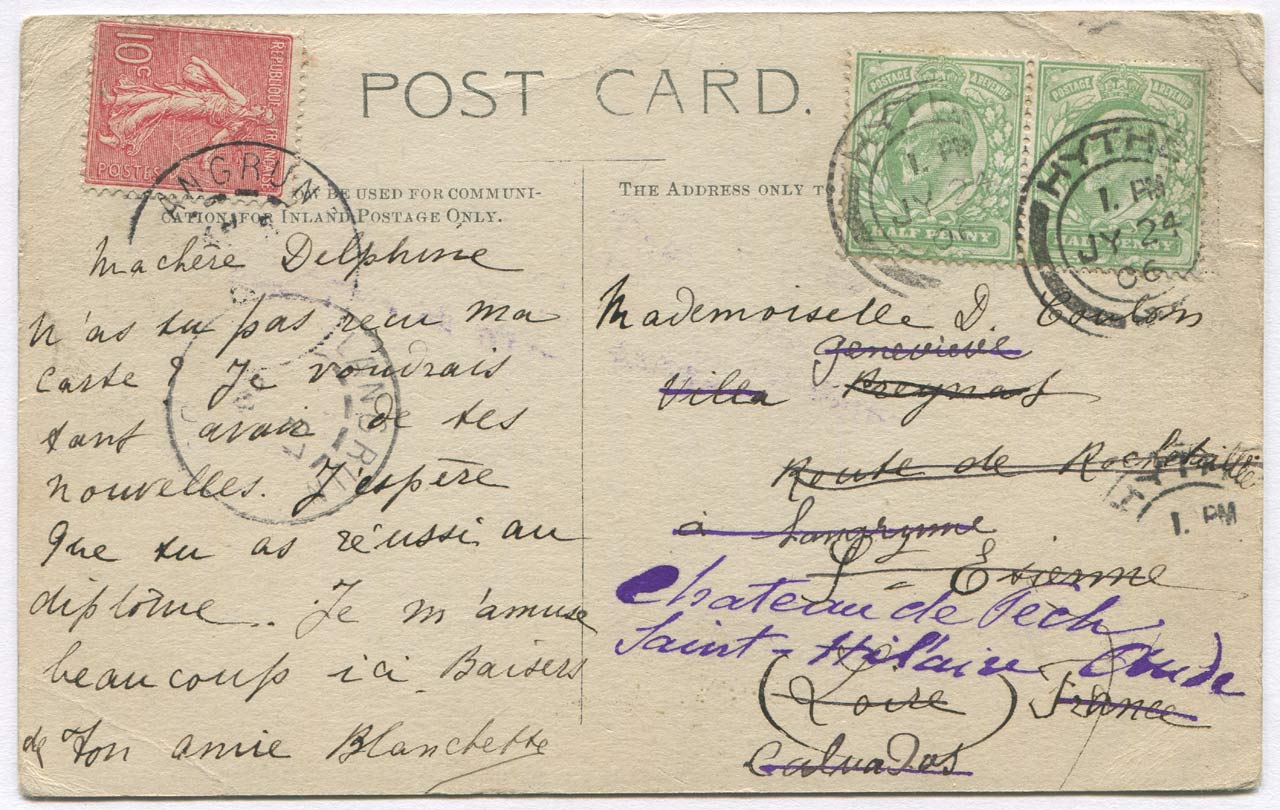 10c
REPUBLIQUE FRANÇAISE
POSTES
POST CARD.
POSTAGE & REVENUE
HALF PENNY
POSTAGE & REVENUE
HALF PENNY
HYTHE
1. PM
JY 24
06
HYTHE
1. PM
JY 24
06
BE USED FOR COMMUNI-
CATION, FOR INLAND POSTAGE ONLY.
THE ADDRESS ONLY TO
LANGRUNE
LANGRUNE
Ma chère Delphine
N'as tu pas recu ma
carte ? Je voudrais
tant avoir de tes
nouvelles. J'espère
que tu as réussi au
diplôme. Je m'amuse
beaucoup ici Baisers
de ton amie Blanchette
Mademoiselle D. Coulon
geneviève
Villa Preynat
Route de Rochetaillée
à Langrune
St Etienne
Chateau de Pech
Saint-Hilaire Aude
(Loire) France
Calvados
1. PM